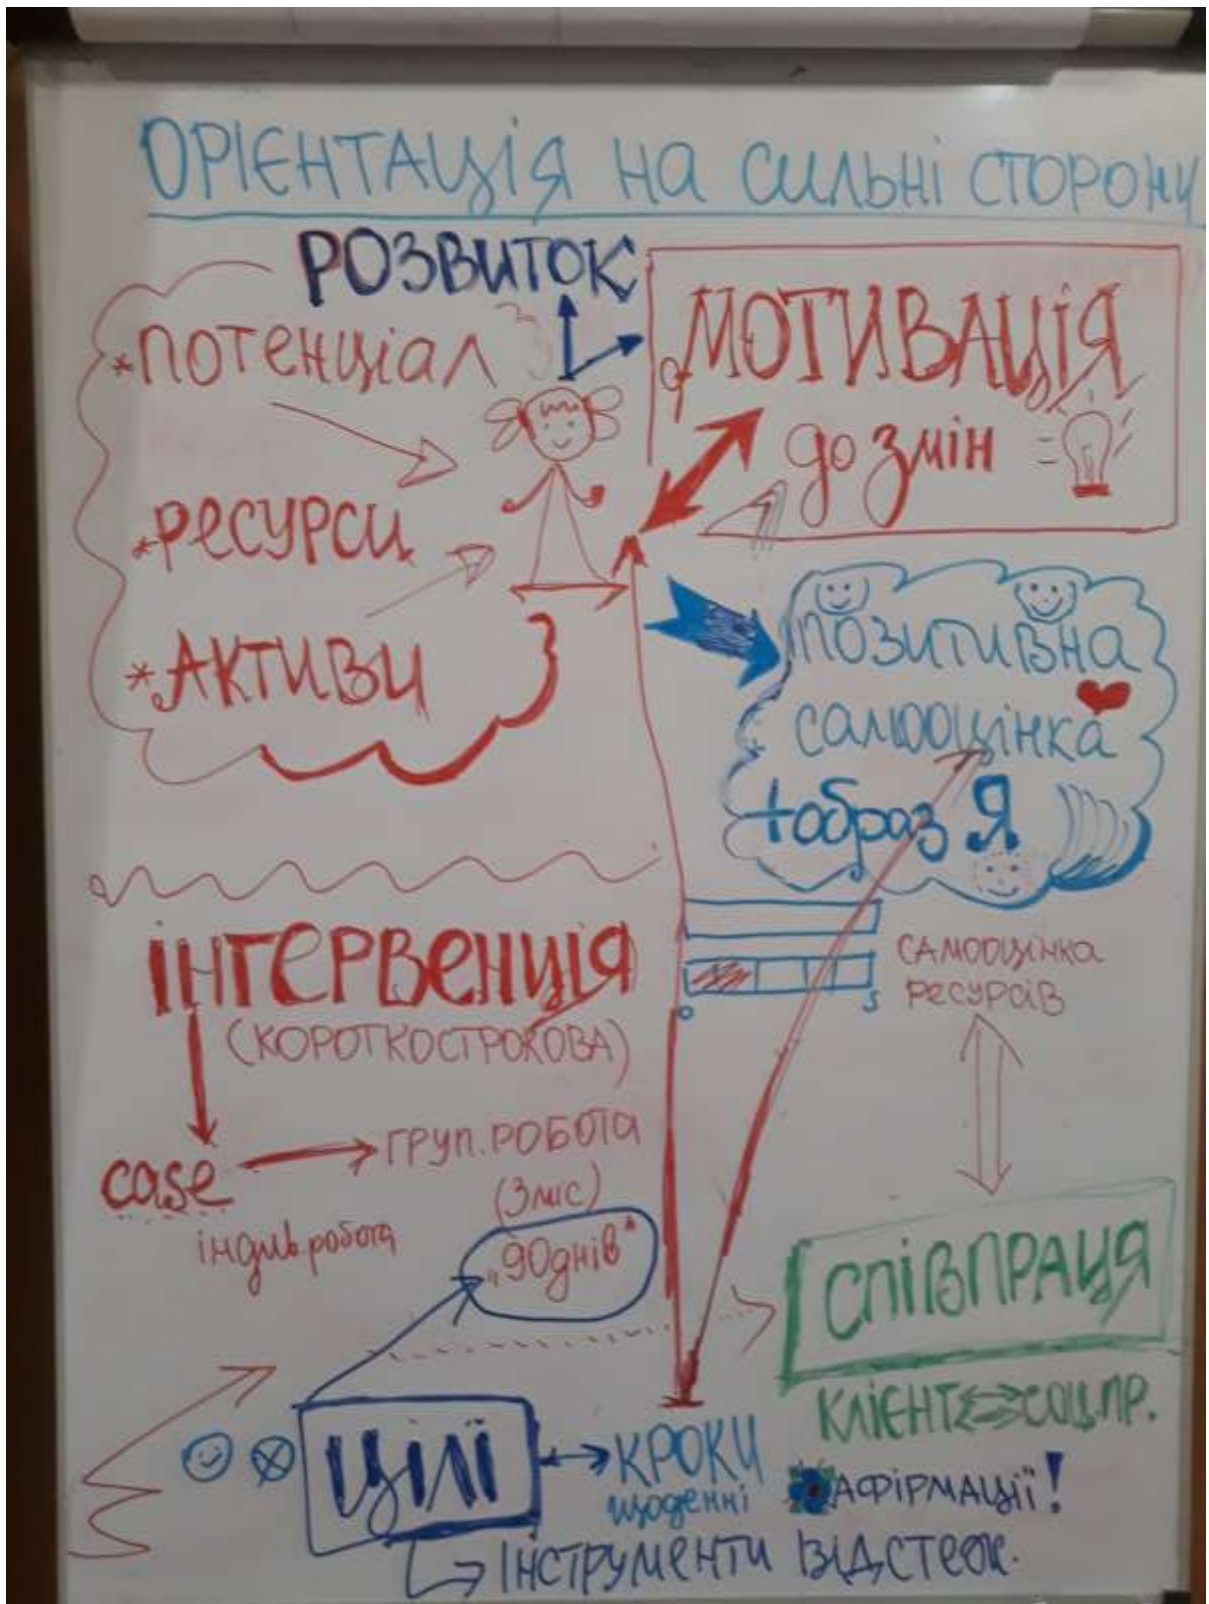 ОРІЄНТАЦІЯ НА СИЛЬНІ СТОРОНИ
РОЗВИТОК
*ПОТЕНЦІАЛ
*РЕСУРСИ
*АКТИВИ
МОТИВАЦІЯ
до змін
ПОЗИТИВНА
самооцінка
+образ Я
0 5
САМООЦІНКА
РЕСУРСІВ
ІНТЕРВЕНЦІЯ
(КОРОТКОСТРОКОВА)
case
індив. робота
ГРУП. РОБОТА
(3 міс)
„90 днів"
СПІВПРАЦЯ
КЛІЄНТ СОЦ.ПР.
ЦІЛІ
КРОКИ
щоденні
АФІРМАЦІЇ!
ІНСТРУМЕНТИ ВІДСТЕЖ.